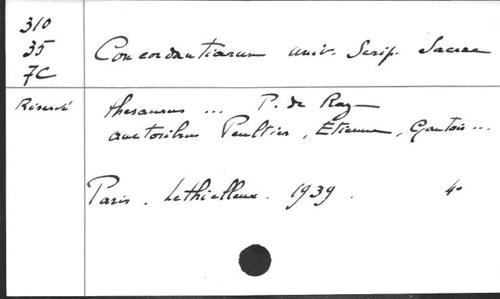 310
35
7C
Concordantiarum univ. Scrip. Sacrae
Réservé
thesaurus ... P. de Raz
auctoribus Peultier, Etienne, Gantois ...
Paris. Lethielleux. 1939. 4°